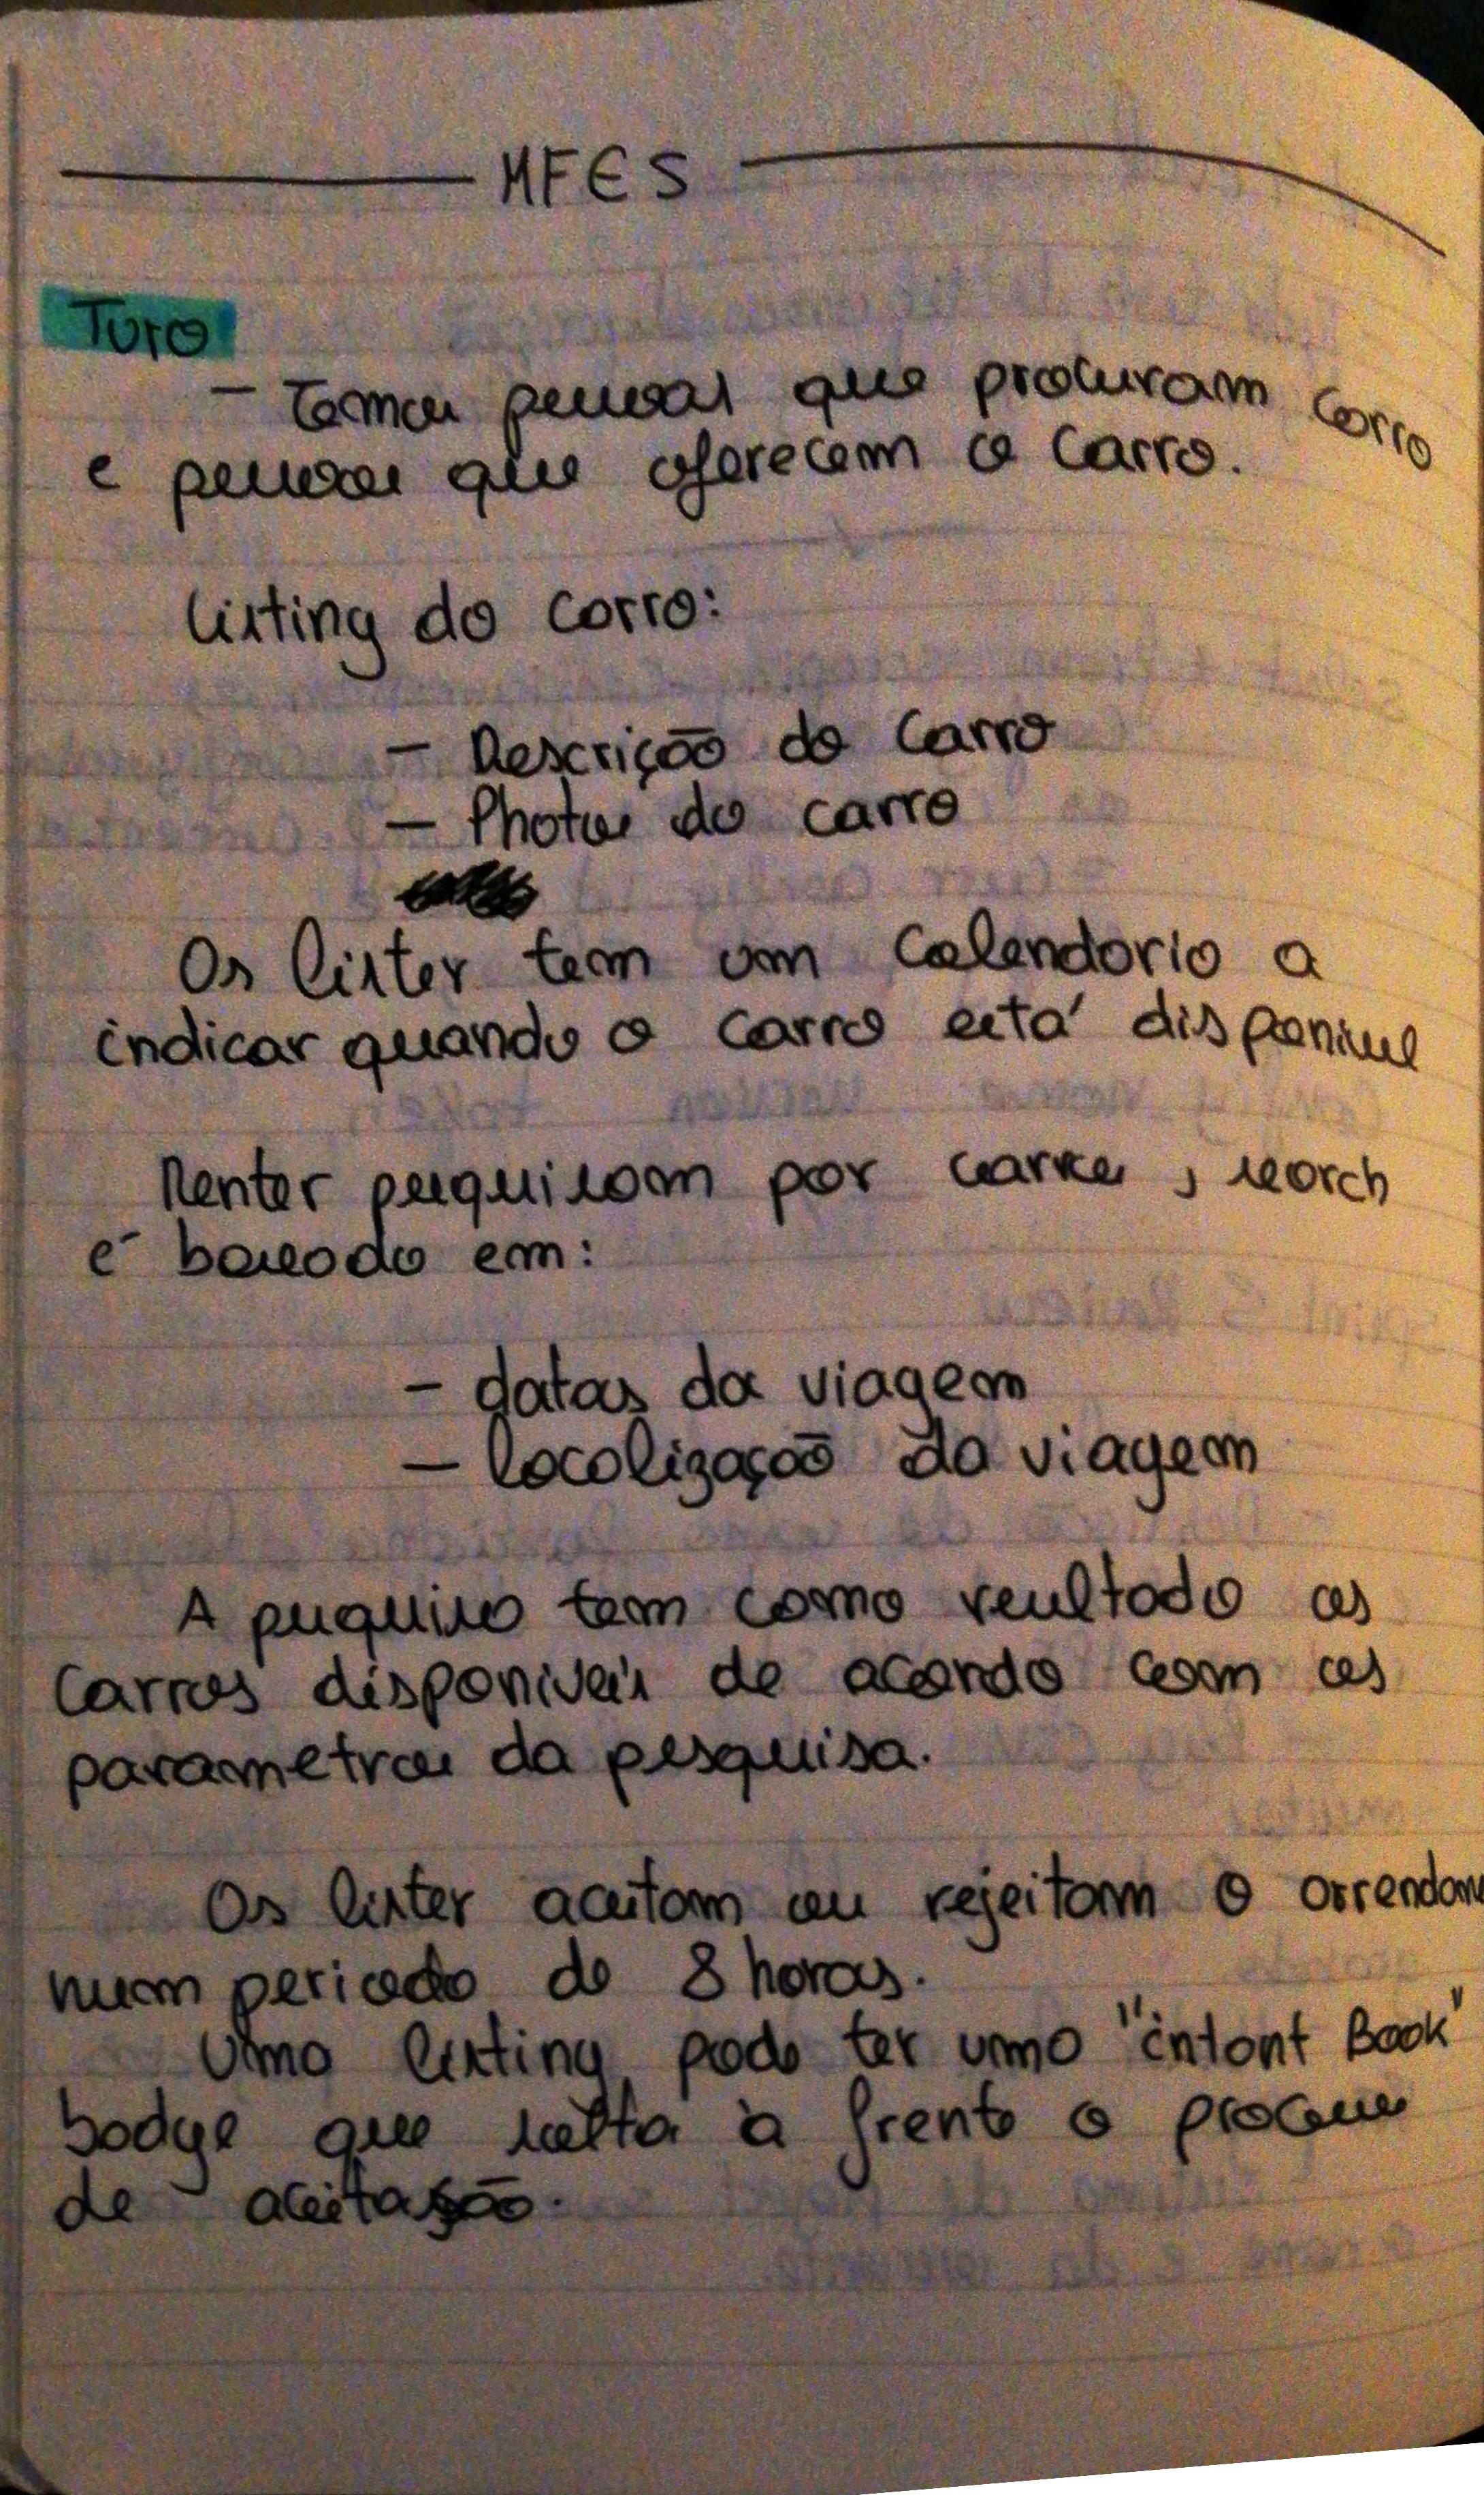 MFES
Turo
- Temos pessoas que procuram carro
e pessoas que oferecem o carro.
Listing do carro:
- Descrição do carro
- Photos do carro
Os lister tem um calendario a
indicar quando o carro está disponivel
Renter pesquisam por carros, search
é baseado em:
- datas da viagem
- localização da viagem
A pesquisa tem como resultado os
carros disponíveis de acordo com os
parametros da pesquisa.
Os lister aceitam ou rejeitam o arrendam
num periodo de 8 horas.
Uma listing pode ter uma "intant Book"
badge que salta à frente o processo
de aceitação.